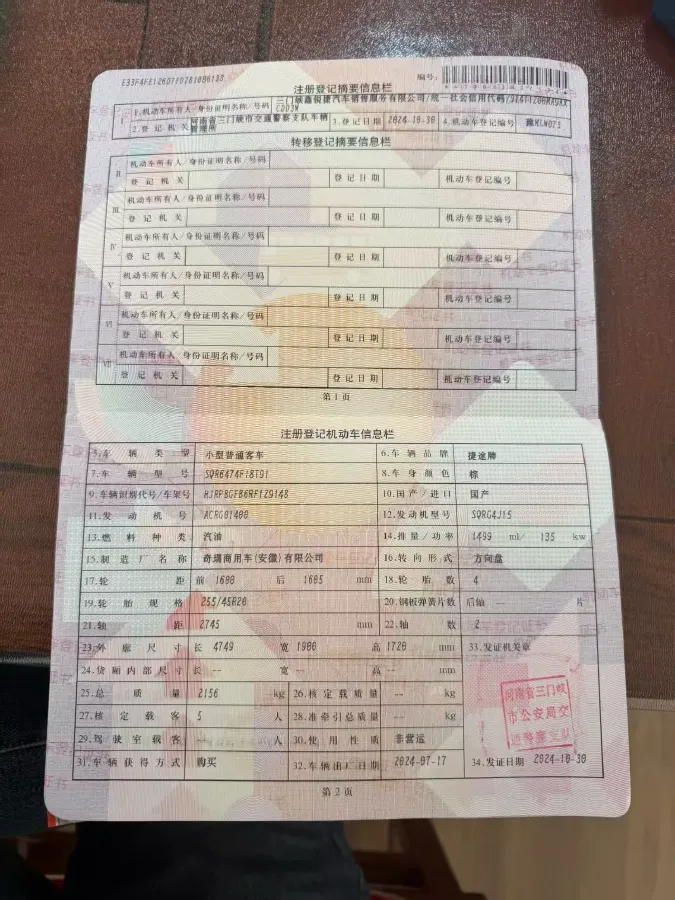 编号:
注册登记摘要信息栏
I 1.机动车所有人/身份证明名称/号码 三门峡鑫锐捷汽车销售服务有限公司/统一社会信用代码/
2.登记机关 河南省三门峡市交通警察支队车辆管理所 3.登记日期 2024-10-30 4.机动车登记编号
转移登记摘要信息栏
II 机动车所有人/身份证明名称/号码
登记机关 登记日期 机动车登记编号
III 机动车所有人/身份证明名称/号码
登记机关 登记日期 机动车登记编号
IV 机动车所有人/身份证明名称/号码
登记机关 登记日期 机动车登记编号
V 机动车所有人/身份证明名称/号码
登记机关 登记日期 机动车登记编号
VI 机动车所有人/身份证明名称/号码
登记机关 登记日期 机动车登记编号
VII 机动车所有人/身份证明名称/号码
登记机关 登记日期 机动车登记编号
第1页
注册登记机动车信息栏
5.车辆类型 小型普通客车 6.车辆品牌 捷途牌
7.车辆型号 SQR6474F18T91 8.车身颜色 棕
9.车辆识别代号/车架号 HJRPBGFB6RF129148 10.国产/进口 国产
11.发动机号 ACRG01400 12.发动机型号 SQRG4J15
13.燃料种类 汽油 14.排量/功率 1499 ml/ 135 kw
15.制造厂名称 奇瑞商用车(安徽)有限公司 16.转向形式 方向盘
17.轮距 前 1600 后 1605 mm 18.轮胎数 4
19.轮胎规格 255/45R20 20.钢板弹簧片数 后轴 -- 片
21.轴距 2745 mm 22.轴数 2
23.外廓尺寸 长 4749 宽 1900 高 1720 mm 33.发证机关章
24.货厢内部尺寸 长 -- 宽 -- 高 -- mm
25.总质量 2156 kg 26.核定载质量 -- kg
河南省三门峡
市公安局交
通警察支队
27.核定载客 5 人 28.准牵引总质量 -- kg
29.驾驶室载客 -- 人 30.使用性质 非营运
31.车辆获得方式 购买 32.车辆出厂日期 2024-07-17 34.发证日期 2024-10-30
第2页